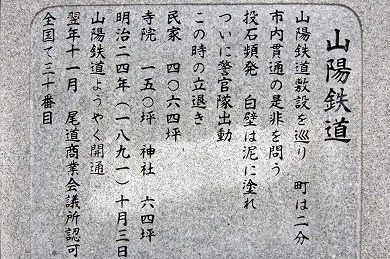 山陽鉄道
山陽鉄道敷設を巡り 町は二分
市内貫通の是非を問う
投石頻発 白壁は泥に塗れ
ついに警官隊出動
この時の立退き
民家 四〇六四坪
寺院 一五〇坪 神社 六四坪
明治二四年(一八九一)十月三日
山陽鉄道ようやく開通
翌年十一月 尾道商業会議所認可
全国で三十番目